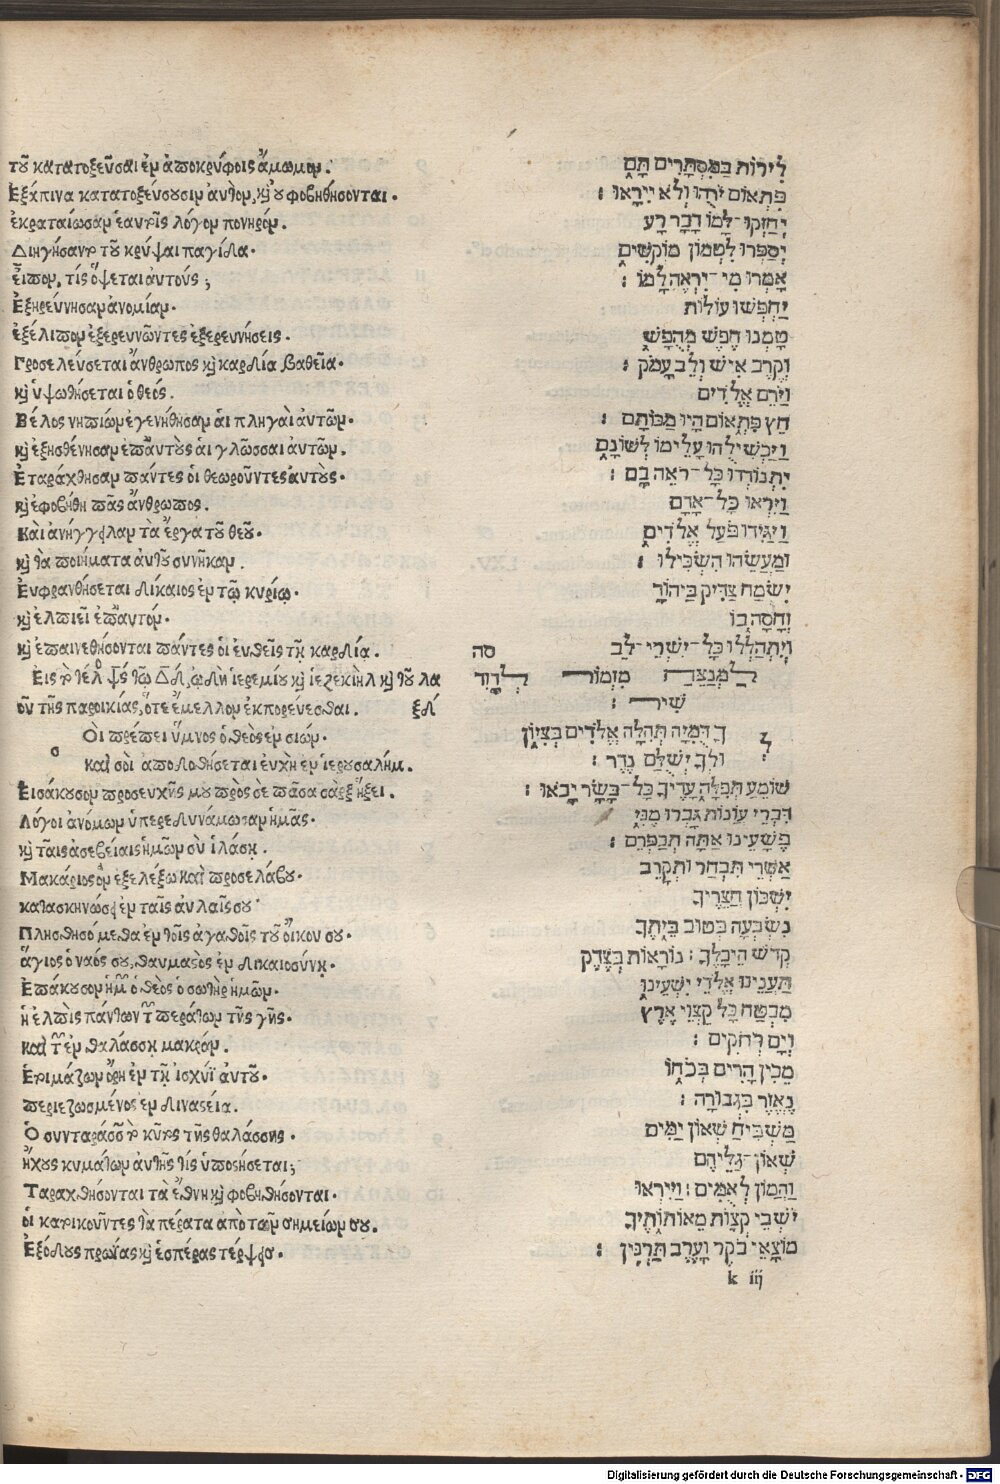 τοῦ κατατοξεῦσαι ἐν ἀποκρύφοις ἄμωμον.
Ἐξάπινα κατατοξεύσουσιν αὐτὸν, καὶ οὐ φοβηθήσονται.
ἐκραταίωσαν ἑαυτοῖς λόγον πονηρόν.
Διηγήσαντο τοῦ κρύψαι παγίδα.
εἶπον, τίς ὄψεται αὐτούς;
Ἐξηρεύνησαν ἀνομίαν.
ἐξέλιπον ἐξερευνῶντες ἐξερευνήσεις.
Προσελεύσεται ἄνθρωπος καὶ καρδία βαθεῖα.
καὶ ὑψωθήσεται ὁ θεός.
Βέλος νηπίων ἐγενήθησαν αἱ πληγαὶ αὐτῶν.
καὶ ἐξησθένησαν ἐπ' αὐτοὺς αἱ γλῶσσαι αὐτῶν.
Ἐταράχθησαν πάντες οἱ θεωροῦντες αὐτούς.
καὶ ἐφοβήθη πᾶς ἄνθρωπος.
Καὶ ἀνήγγειλαν τὰ ἔργα τοῦ θεοῦ.
καὶ τὰ ποιήματα αὐτοῦ συνῆκαν.
Εὐφρανθήσεται δίκαιος ἐν τῷ κυρίῳ.
καὶ ἐλπιεῖ ἐπ' αὐτόν.
καὶ ἐπαινεθήσονται πάντες οἱ εὐθεῖς τῇ καρδίᾳ.
Εἰς τὸ τέλος ψαλμὸς τῷ Δαδ, ᾠδὴ ἱερεμίου καὶ ἱεζεκιὴλ καὶ τοῦ λα
οῦ τῆς παροικίας, ὅτε ἔμελλον ἐκπορεύεσθαι. ξδ
Οι πρέπει ὕμνος ὁ θεὸς ἐν σιών.
σ
καὶ σοὶ ἀποδοθήσεται εὐχὴ ἐν ἱερουσαλήμ.
Εἰσάκουσον προσευχῆς μου πρὸς σὲ πᾶσα σὰρξ ἥξει.
Λόγοι ἀνόμων ὑπερεδυνάμωσαν ἡμᾶς.
καὶ ταῖς ἀσεβείαις ἡμῶν σὺ ἱλάσῃ.
Μακάριος ὃν ἐξελέξω καὶ προσελάβου.
κατασκηνώσει ἐν ταῖς αὐλαῖς σου
Πλησθησόμεθα ἐν τοῖς ἀγαθοῖς τοῦ οἴκου σου.
ἅγιος ὁ ναός σου, θαυμαστὸς ἐν δικαιοσύνῃ.
Ἐπάκουσον ἡμῶν ὁ θεὸς ὁ σωτὴρ ἡμῶν.
ἡ ἐλπὶς πάντων τῶν περάτων τῆς γῆς.
καὶ τῶν ἐν θαλάσσῃ μακράν.
Ἑτοιμάζων ὄρη ἐν τῇ ἰσχύϊ αὐτοῦ.
περιεζωσμένος ἐν δυναστείᾳ.
Ὁ συνταράσσων τὸ κῦτος τῆς θαλάσσης.
ἤχους κυμάτων αὐτῆς τίς ὑποστήσεται;
Ταραχθήσονται τὰ ἔθνη καὶ φοβηθήσονται.
οἱ κατοικοῦντες τὰ πέρατα ἀπὸ τῶν σημείων σου.
Ἐξόδους πρωΐας καὶ ἑσπέρας τέρψεις.
לִירוֹת בַּמִּסְתָּרִים תָּם
פִּתְאוֹם יֹרֻהוּ וְלֹא יִירָאוּ :
יְחַזְּקוּ־לָמוֹ דָּבָר רָע
יְסַפְּרוּ לִטְמוֹן מוֹקְשִׁים
אָמְרוּ מִי־יִרְאֶה לָּמוֹ :
יַחְפְּשׂוּ עוֹלוֹת
טָמְנוּ חֵפֶשׂ מְחֻפָּשׂ
וְקֶרֶב אִישׁ וְלֵב עָמֹק :
וַיֹּרֵם אֱלֹדִים
חֵץ פִּתְאוֹם הָיוּ מַכּוֹתָם :
וַיַּכְשִׁילֻהוּ עָלֵימוֹ לְשׁוֹנָם
יִתְנוֹדְדוּ כָּל־רֹאֵה בָם :
וַיִּירְאוּ כָּל־אָדָם
וַיַּגִּידוּ פֹּעַל אֱלֹדִים
וּמַעֲשֵׂהוּ הִשְׂכִּילוּ :
יִשְׂמַח צַדִּיק בַּיהוָֹה
וְחָסָה בוֹ
וְיִתְהַלְלוּ כָּל־יִשְׁרֵי־לֵב סה
לַמְנַצֵּחַ מִזְמוֹר לְדָוִד
שִׁיר :
ךָ דֻמִיָּה תְהִלָּה אֱלֹדִים בְּצִיּוֹן
ל
וּלְךָ יְשֻׁלַּם נֶדֶר :
שׁוֹמֵעַ תְּפִלָּה עָדֶיךָ כָּל־בָּשָׂר יָבֹאוּ :
דִּבְרֵי עֲוֹנוֹת גָּבְרוּ מֶנִּי
פְּשָׁעֵינוּ אַתָּה תְכַפְּרֵם :
אַשְׁרֵי תִּבְחַר וּתְקָרֵב
יִשְׁכּוֹן חֲצֵרֶיךָ
נִשְׂבְּעָה בְּטוּב בֵּיתֶךָ
קְדֹשׁ הֵיכָלֶךָ : נוֹרָאוֹת בְּצֶדֶק
תַּעֲנֵינוּ אֱלֹדֵי יִשְׁעֵינוּ
מִבְטַח כָּל קַצְוֵי אֶרֶץ
וְיָם רְחֹקִים :
מֵכִין הָרִים בְּכֹחוֹ
נֶאֱזָר בִּגְבוּרָה :
מַשְׁבִּיחַ שְׁאוֹן יַמִּים
שְׁאוֹן־גַּלֵּיהֶם
וַהֲמוֹן לְאֻמִּים : וַיִּירְאוּ
יֹשְׁבֵי קְצָוֹת מֵאוֹתוֹתֶיךָ
מוֹצָאֵי בֹקֶר וָעֶרֶב תַּרְנִין :
k iij
Digitalisierung gefördert durch die Deutsche Forschungsgemeinschaft - DFG